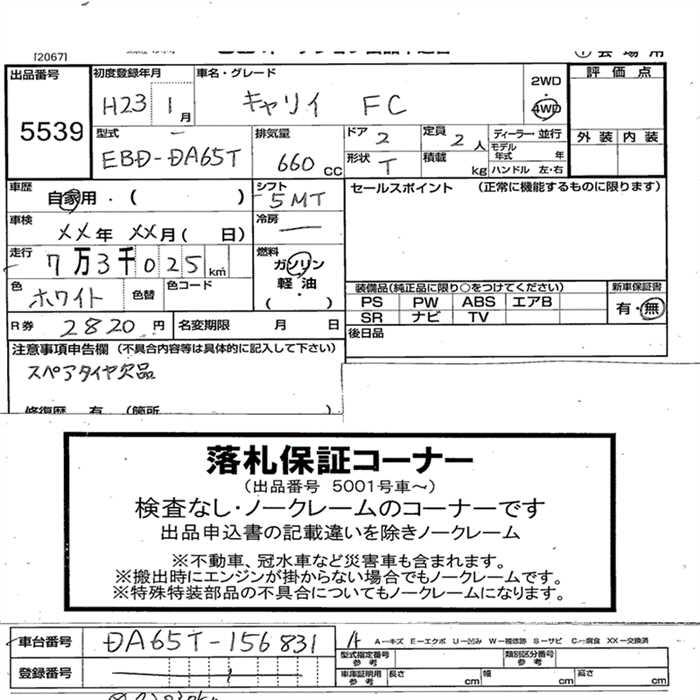 [2067]
出品番号
5539
初度登録年月
H23 1月
車名・グレード
キャリイ FC
2WD
・
4WD
評価点
外装 内装
型式
EBD-DA65T
排気量
660cc
ドア
2
定員
2人
ディーラー・並行
モデル年式 年
形状
T
積載 kg
ハンドル 左・右
車歴
自家用・( )
シフト
5MT
セールスポイント (正常に機能するものに限ります)
車検
XX年 XX月( 日)
冷房
走行
7万3千025km
燃料
ガソリン
軽油
( )
色
ホワイト
色替
色コード
装備品(純正品に限り○をつけてください)
PS PW ABS エアB
SR ナビ TV
新車保証書
有・無
R券 2820円
名変期限 月 日
後日品
注意事項申告欄(不具合内容等は具体的に記入して下さい)
スペアタイヤ欠品
修復歴 有 (箇所 )
落札保証コーナー
(出品番号 5001号車~)
検査なし・ノークレームのコーナーです
出品申込書の記載違いを除きノークレーム
※不動車、冠水車など災害車も含まれます。
※搬出時にエンジンが掛からない場合でもノークレームです。
※特殊特装部品の不具合についてもノークレームになります。
車台番号
DA65T-156831
A
A-キズ E-エクボ U-凹み W-補修跡 S-サビ C-腐食 XX-交換済
型式指定番号
参考
類別区分番号
参考
登録番号
車庫証明用
参考
長さ cm
幅 cm
高さ cm